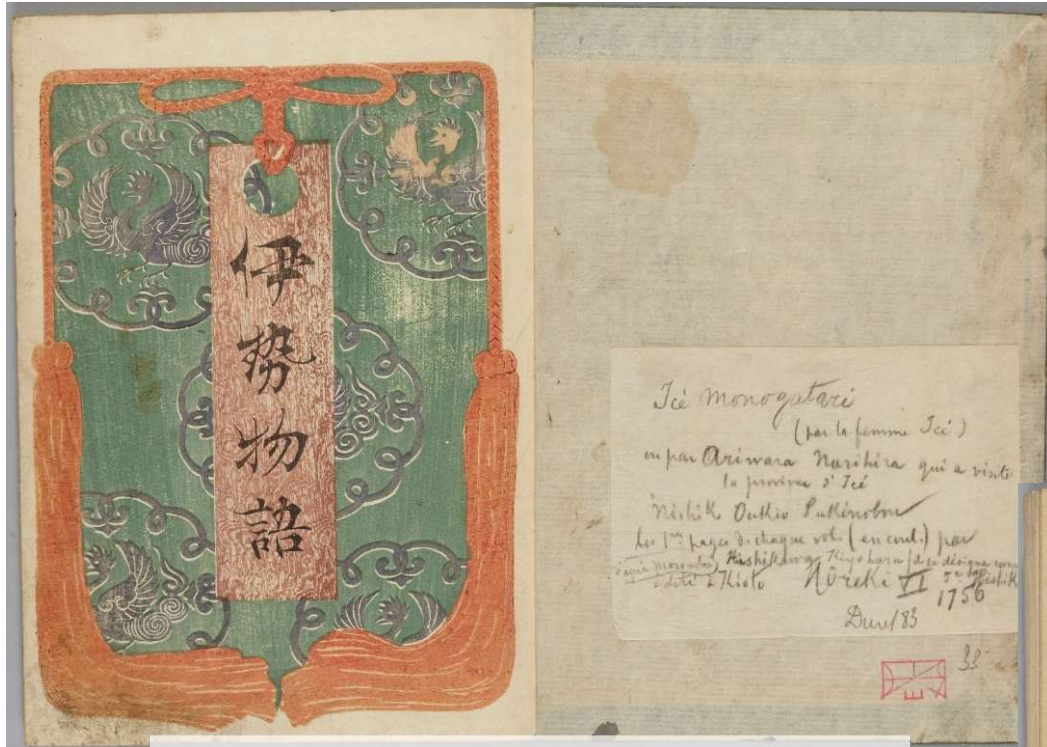 伊勢物語
Icé monogatari
(par la femme Icé)
ou par Ariwara Narihira qui a visité
la province d'Icé
Nishik Sukénobou
les 1res pages de chaque vol. (en coul.) par
d'après Moronobou Kiyoharu
édité à Kioto Hôreki VI
1756
Duret 83
33